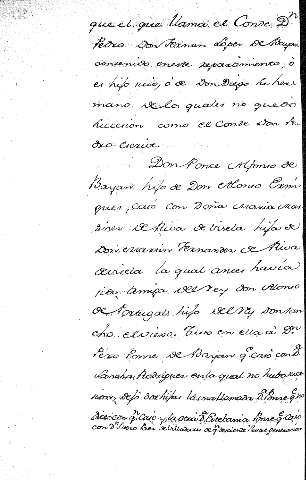 que el que llama el Conde Dn
Pedro Don Fernan Lopez de Bayan
contenido en este repartimiento, ò
es hijo suio, ó de Don Diego su her
mano de los quales no quedo
succesion como el Conde Don Pe
dro escrive.
Don Ponce Alfonso de
Bayan hijo de Don Alonso Erriq
quez, casó con Doña Maria Mar
tinez de Riva de Visela hija de
Don Martin Fernandez de Riva
de Visela la qual antes havia
sido Amiga del Rey Don Alonso
de Portugal hijo del Rey Don San
cho el viejo. Tuvo en ella á Dn
Pedro Ponce de Bayan q.e casó con D.a
Sancha Rodriguez en la qual no hubo
dejó dos hijas la una llamada D.a
q.e Casó y la otra D.a Estebania Ponce q.e Casó
con D.n